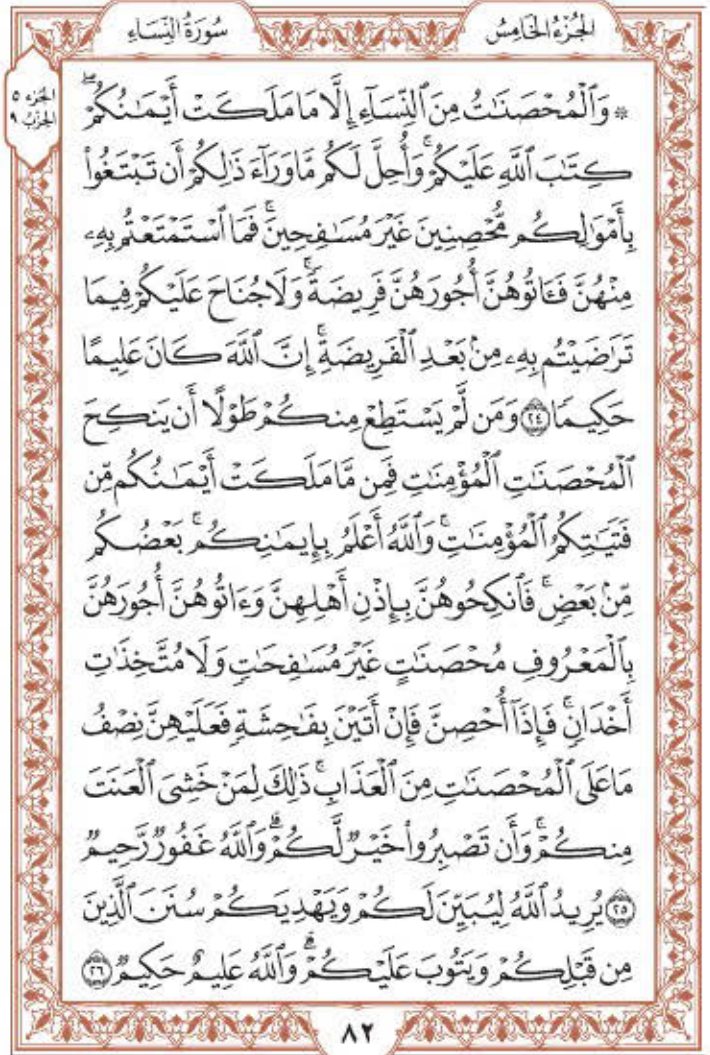 الجُزْءُ الخَامِسُ
سُورَةُ النِّسَاءِ
الجزء ٥
الحزب ٩
۞ وَٱلْمُحْصَنَـٰتُ مِنَ ٱلنِّسَآءِ إِلَّا مَا مَلَكَتْ أَيْمَـٰنُكُمْ ۖ
كِتَـٰبَ ٱللَّهِ عَلَيْكُمْ ۚ وَأُحِلَّ لَكُم مَّا وَرَآءَ ذَٰلِكُمْ أَن تَبْتَغُوا۟
بِأَمْوَٰلِكُم مُّحْصِنِينَ غَيْرَ مُسَـٰفِحِينَ ۚ فَمَا ٱسْتَمْتَعْتُم بِهِۦ
مِنْهُنَّ فَـَٔاتُوهُنَّ أُجُورَهُنَّ فَرِيضَةً ۚ وَلَا جُنَاحَ عَلَيْكُمْ فِيمَا
تَرَٰضَيْتُم بِهِۦ مِنۢ بَعْدِ ٱلْفَرِيضَةِ ۚ إِنَّ ٱللَّهَ كَانَ عَلِيمًا
حَكِيمًا ٢٤ وَمَن لَّمْ يَسْتَطِعْ مِنكُمْ طَوْلًا أَن يَنكِحَ
ٱلْمُحْصَنَـٰتِ ٱلْمُؤْمِنَـٰتِ فَمِن مَّا مَلَكَتْ أَيْمَـٰنُكُم مِّن
فَتَيَـٰتِكُمُ ٱلْمُؤْمِنَـٰتِ ۚ وَٱللَّهُ أَعْلَمُ بِإِيمَـٰنِكُم ۚ بَعْضُكُم
مِّنۢ بَعْضٍ ۚ فَٱنكِحُوهُنَّ بِإِذْنِ أَهْلِهِنَّ وَءَاتُوهُنَّ أُجُورَهُنَّ
بِٱلْمَعْرُوفِ مُحْصَنَـٰتٍ غَيْرَ مُسَـٰفِحَـٰتٍ وَلَا مُتَّخِذَٰتِ
أَخْدَانٍ ۚ فَإِذَآ أُحْصِنَّ فَإِنْ أَتَيْنَ بِفَـٰحِشَةٍ فَعَلَيْهِنَّ نِصْفُ
مَا عَلَى ٱلْمُحْصَنَـٰتِ مِنَ ٱلْعَذَابِ ۚ ذَٰلِكَ لِمَنْ خَشِىَ ٱلْعَنَتَ
مِنكُمْ ۚ وَأَن تَصْبِرُوا۟ خَيْرٌ لَّكُمْ ۗ وَٱللَّهُ غَفُورٌ رَّحِيمٌ
٢٥ يُرِيدُ ٱللَّهُ لِيُبَيِّنَ لَكُمْ وَيَهْدِيَكُمْ سُنَنَ ٱلَّذِينَ
مِن قَبْلِكُمْ وَيَتُوبَ عَلَيْكُمْ ۗ وَٱللَّهُ عَلِيمٌ حَكِيمٌ ٢٦
٨٢